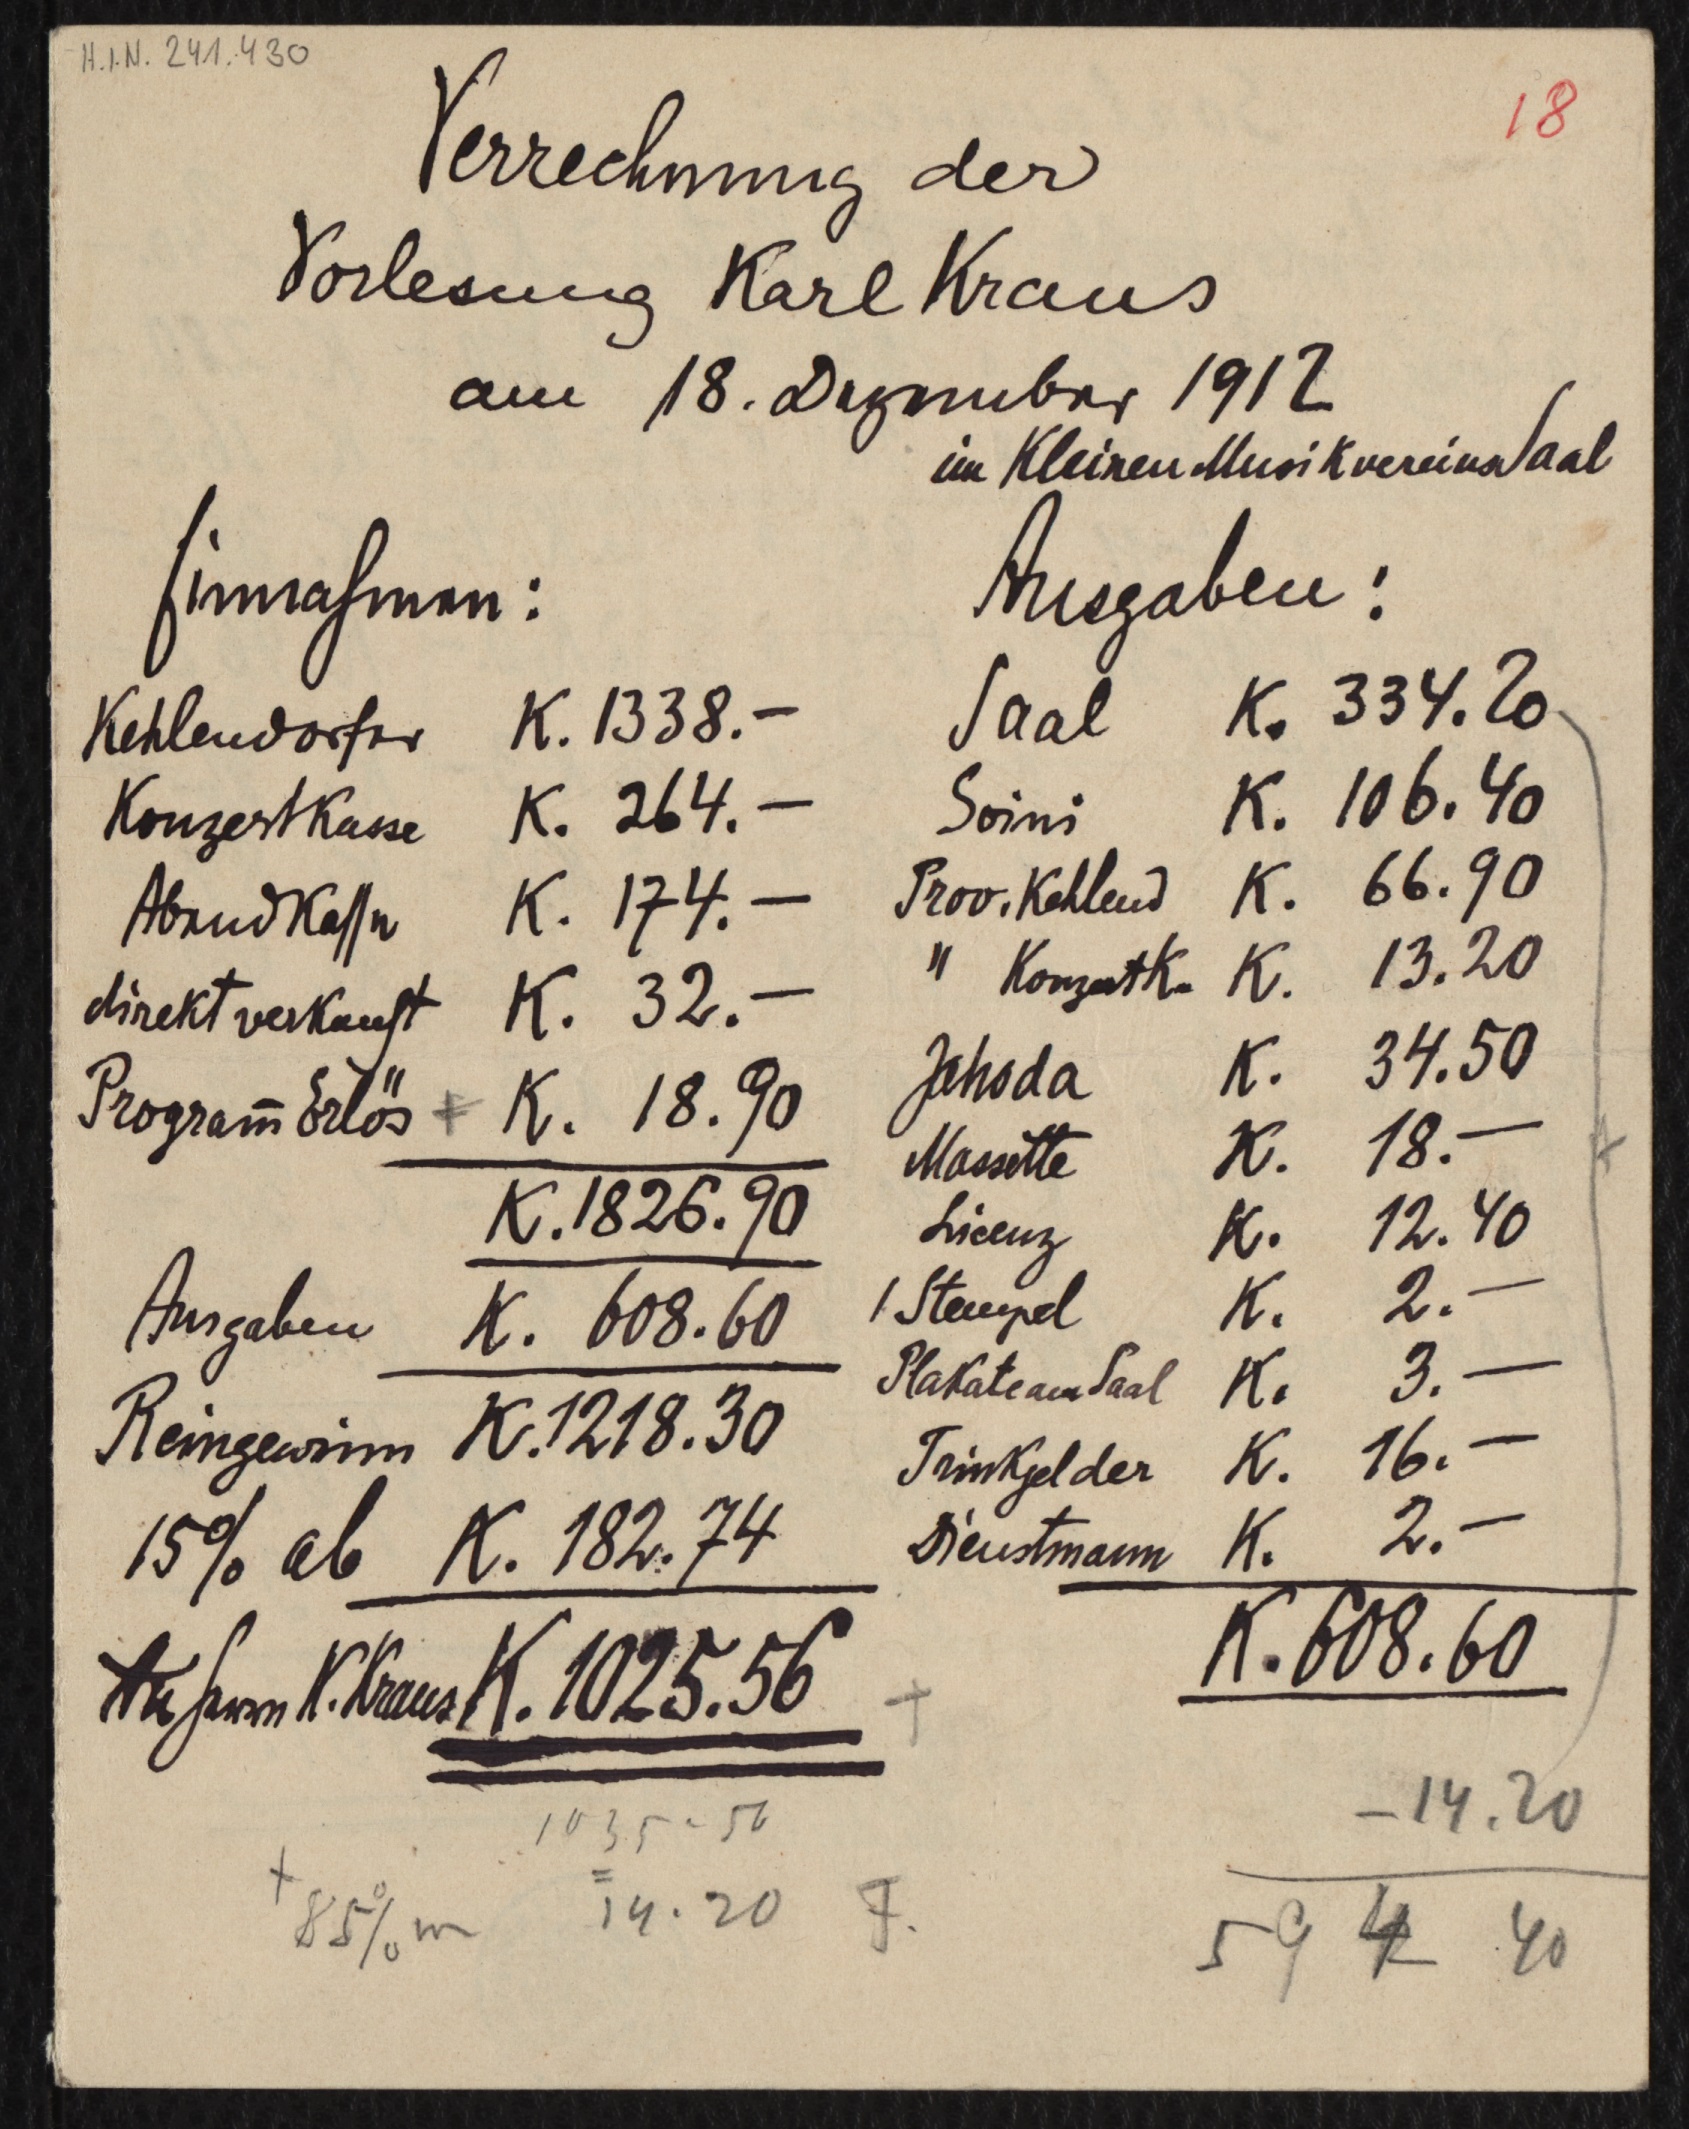 H.I.N. 241.430
18
Verrechnung der
Vorlesung Karl Kraus
am 18. Dezember 1912
im Kleinen Musikvereins Saal
Einnahmen:
Kehlendorfer K. 1338.—
Konzertkasse K. 264.—
Abendkasse K. 174.—
direkt verkauft K. 32.—
Program̅ Erlös + K. 18.90
K. 1826.90
Ausgaben K. 608.60
Reingewinn K. 1218.30
15% ab K. 182.74
An Herrn K. Kraus K. 1025.56 +
1035.56
14.20 F.
+ 85%
Ausgaben:
Saal K. 334.20
Soini K. 106.40
Prov. Kehlend K. 66.90
" Konzertk. K. 13.20
Jahoda K. 34.50
Massette K. 18.—
Licenz K. 12.40
1 Stempel K. 2.—
Plakate am Saal K. 3.—
Trinkgelder K. 16.—
Dienstmann K. 2.—
K. 608.60
– 14.20
594 40